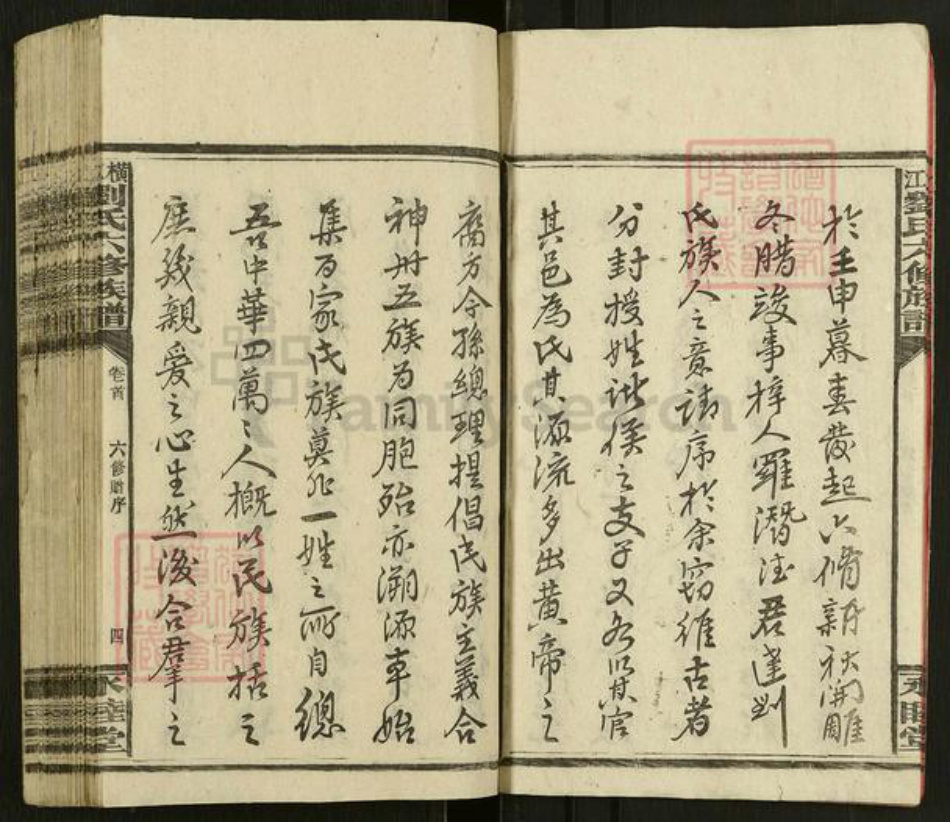 江劉氏六修族譜
永睦堂
於壬申暮春發起六脩新秋開雕
冬腊竣事梓人羅潛德君達劉
氏族人之意請序於余窃維古者
分封授姓諸侯之支子又各以其官
其邑為氏其源流多出黃帝之
裔方今孫總理提倡民族主義合
神州五族为同胞殆亦溯源本始
集百家氏族莫非一姓之所自總
吾中華四萬萬人概以民族括之
庶幾親愛之心生然後合羣之
橫江劉氏六修族譜
卷首
六修譜序
四
永睦堂
FamilySearch